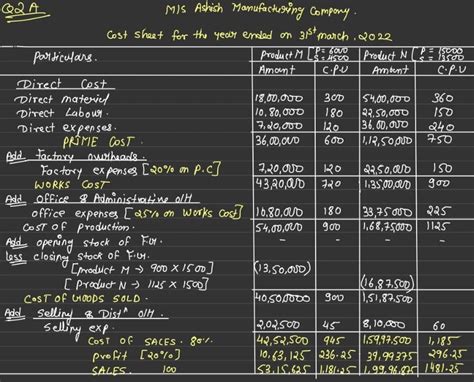 Q2A M/S Ashish Manufacturing Company.
Cost sheet for the year ended on 31st march, 2022
Particulars. Product M [P = 6000 S = 4500 Product N [P = 15000 S = 13500
Amount C.P.U Amount C.P.U
Direct Cost
Direct material 18,00,000 300 54,00,000 360
Direct Labour. 10,80,000 180 22,50,000 150
Direct expenses. 7,20,000 120 36,00,000 240
PRIME COST. 36,00,000 600 1,12,50,000 750
Add Factory overheads.
Factory expenses [20% on P.C] 7,20,000 120 22,50,000 150
WORKS COST 43,20,000 720 1,35,00,000 900
Add Office & Administrative O/H
office expenses [25% on Works Cost] 10,80,000 180 33,75,000 225
Cost of production. 54,00,000 900 1,68,75,000 1125
Add opening stock of F.G. - - - -
Less closing stock of F.G.
[product M → 900 x 1500] (13,50,000)
[Product N → 1125 x 1500] (16,87,500)
COST OF GOODS SOLD. 40,50,000 900 1,51,87,500
Add Selling & Distn O/H
Selling exp. 2,02,500 45 8,10,000 60
COST OF SALES. 80% 42,52,500 945 1,59,97,500 1,185
profit [20%] 10,63,125 236.25 39,99,375 296.25
SALES. 100 53,15,625 1,181.25 1,99,96,875 1481.25